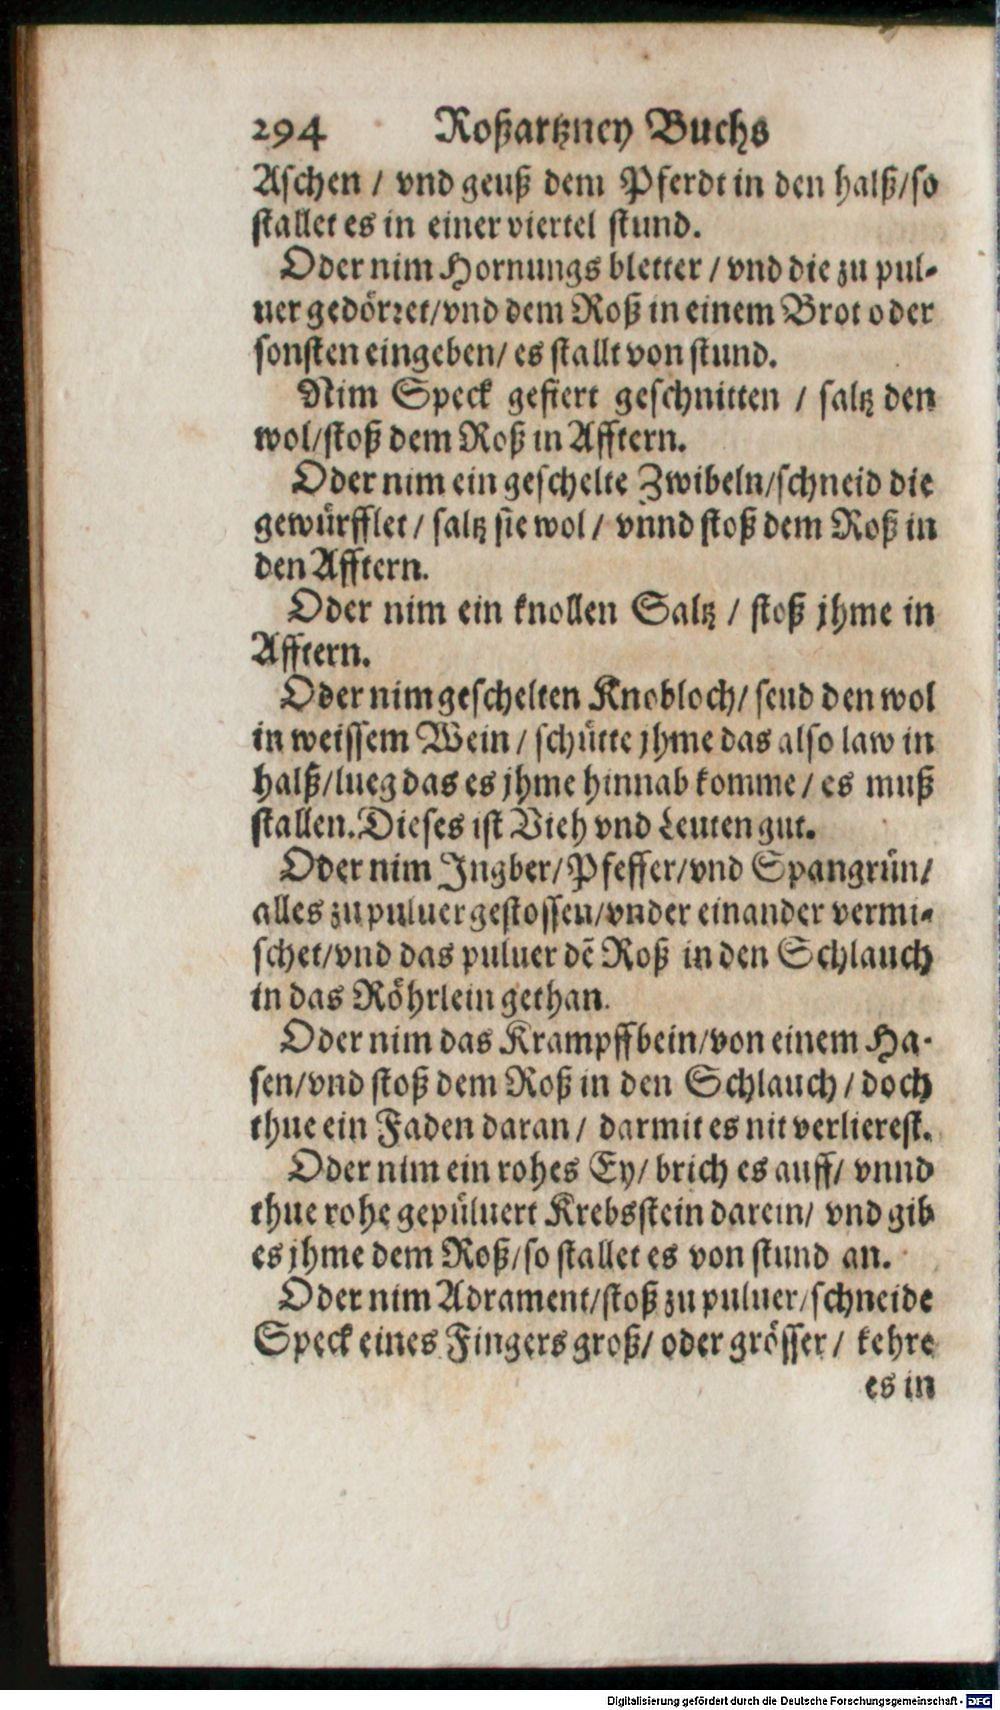 294 Roßartzney Buchs
Aschen / vnd geuß dem Pferdt in den halß/so
stallet es in einer viertel stund.
Oder nim Hornungs bletter / vnd die zu pul-
uer gedörret/vnd dem Roß in einem Brot oder
sonsten eingeben/ es stallt von stund.
Nim Speck gefiert geschnitten / saltz den
wol/stoß dem Roß in Afftern.
Oder nim ein geschelte Zwibeln/schneid die
gewürfflet / saltz sie wol / vnnd stoß dem Roß in
den Afftern.
Oder nim ein knollen Saltz / stoß jhme in
Afftern.
Oder nim geschelten Knobloch/ seud den wol
in weissem Wein / schütte jhme das also law in
halß/lueg das es jhme hinnab komme / es muß
stallen. Dieses ist Vieh vnd Leuten gut.
Oder nim Ingber/Pfeffer/vnd Spangrün/
alles zu puluer gestossen/vnder einander vermi-
schet/vnd das puluer dē Roß in den Schlauch
in das Röhrlein gethan.
Oder nim das Krampffbein/von einem Ha-
sen/vnd stoß dem Roß in den Schlauch / doch
thue ein Faden daran / darmit es nit verlierest.
Oder nim ein rohes Ey/ brich es auff/ vnnd
thue rohe gepüluert Krebsstein darein/ vnd gib
es jhme dem Roß/so stallet es von stund an.
Oder nim Adrament/stoß zu puluer/schneide
Speck eines Fingers groß/ oder grösser / kehre
es in
Digitalisierung gefördert durch die Deutsche Forschungsgemeinschaft - DFG